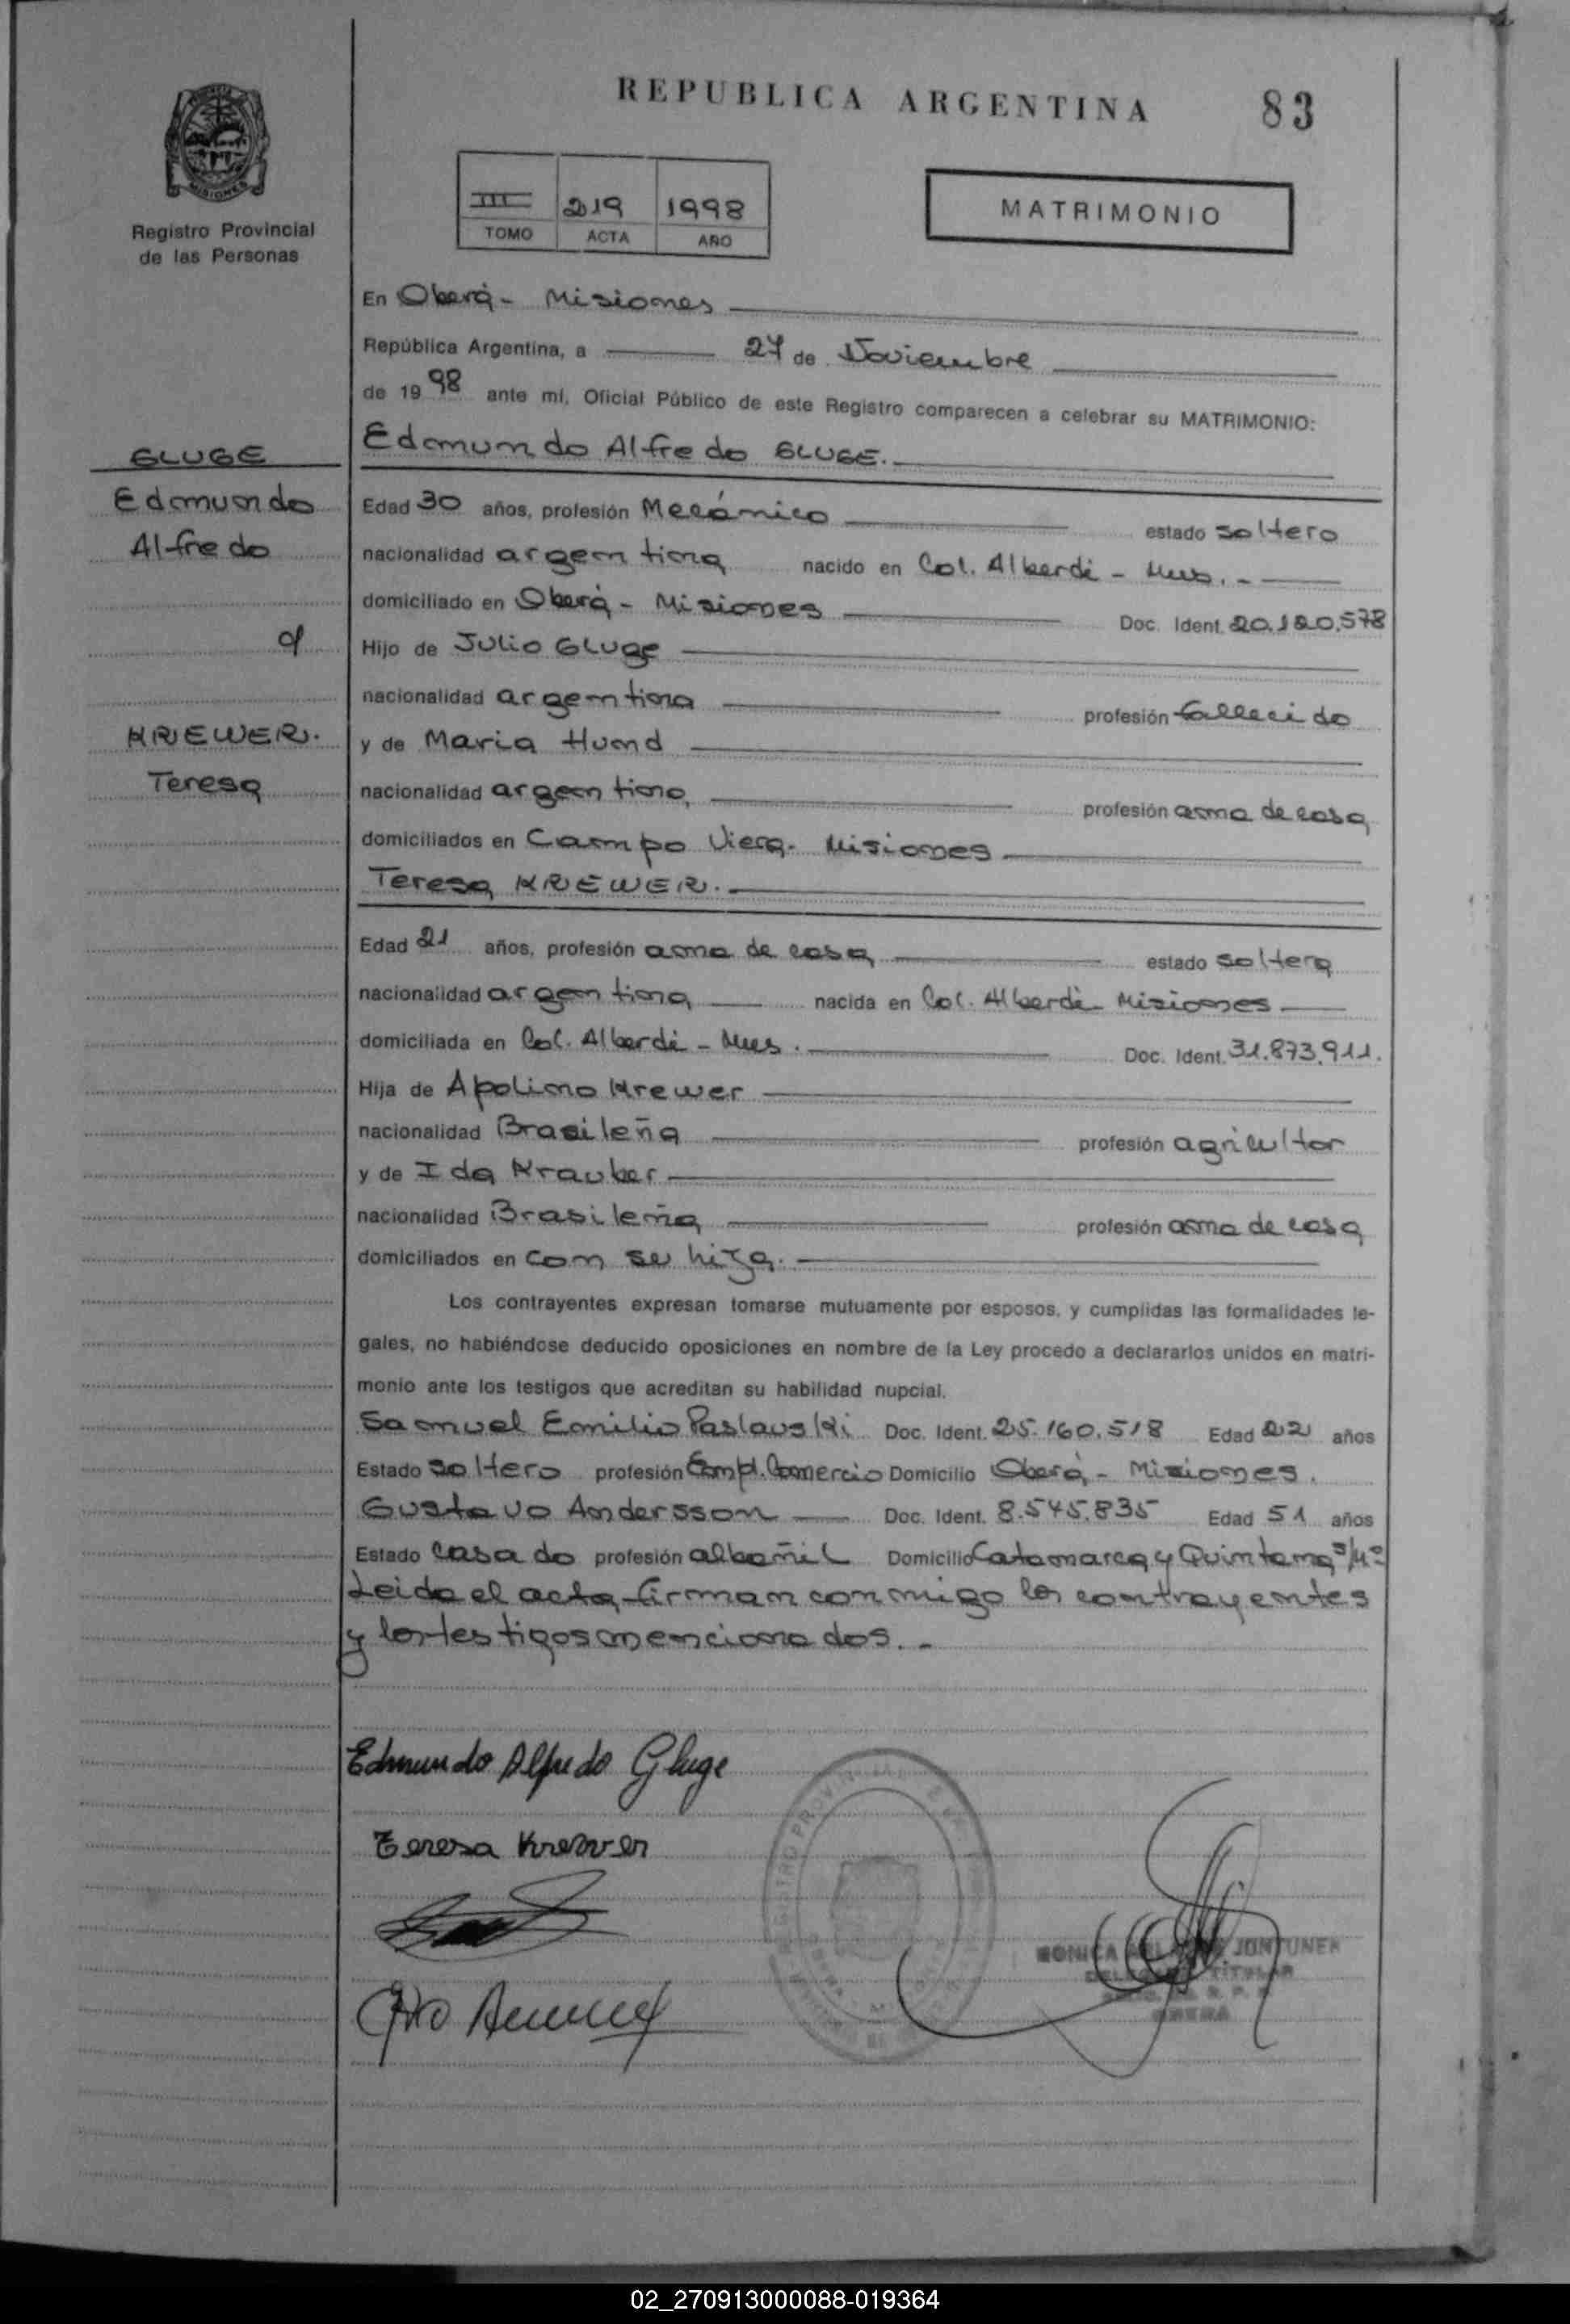 REPUBLICA ARGENTINA 83
MISIONES
Registro Provincial
de las Personas
III 219 1998
TOMO ACTA AÑO
MATRIMONIO
En Oberá - Misiones
República Argentina, a 27 de Noviembre
de 1998 ante mí, Oficial Público de este Registro comparecen a celebrar su MATRIMONIO:
GLUGE
Edmundo
Alfredo
c/
KREWER.
Teresa
Edmundo Alfredo GLUGE.
Edad 30 años, profesión Mecánico estado soltero
nacionalidad argentina nacido en Col. Alberdi - Mnes. -
domiciliado en Oberá - Misiones Doc. Ident. 20.120.578
Hijo de Julio Gluge
nacionalidad argentina profesión fallecido
y de Maria Hund
nacionalidad argentina profesión ama de casa
domiciliados en Campo Viera - Misiones
Teresa KREWER.
Edad 21 años, profesión ama de casa estado soltera
nacionalidad argentina nacida en Col. Alberdi - Misiones
domiciliada en Col. Alberdi - Mnes. Doc. Ident. 31.873.911.
Hija de Apolino Krewer
nacionalidad Brasileña profesión agricultor
y de Ida Krauber
nacionalidad Brasileña profesión ama de casa
domiciliados en con su hija.
Los contrayentes expresan tomarse mutuamente por esposos, y cumplidas las formalidades le-
gales, no habiéndose deducido oposiciones en nombre de la Ley procedo a declararlos unidos en matri-
monio ante los testigos que acreditan su habilidad nupcial.
Samuel Emilio Paslauski Doc. Ident. 25.160.518 Edad 22 años
Estado soltero profesión Empl. Comercio Domicilio Oberá - Misiones.
Gustavo Andersson Doc. Ident. 8.545.835 Edad 51 años
Estado casado profesión albañil Domicilio Catamarca y Quintana s/nº
Leida el acta firman conmigo los contrayentes
y los testigos mencionados. -
Edmundo Alfredo Gluge
Teresa Krewer
JONTUNEN
TITULAR
OBERA
02_270913000088-019364